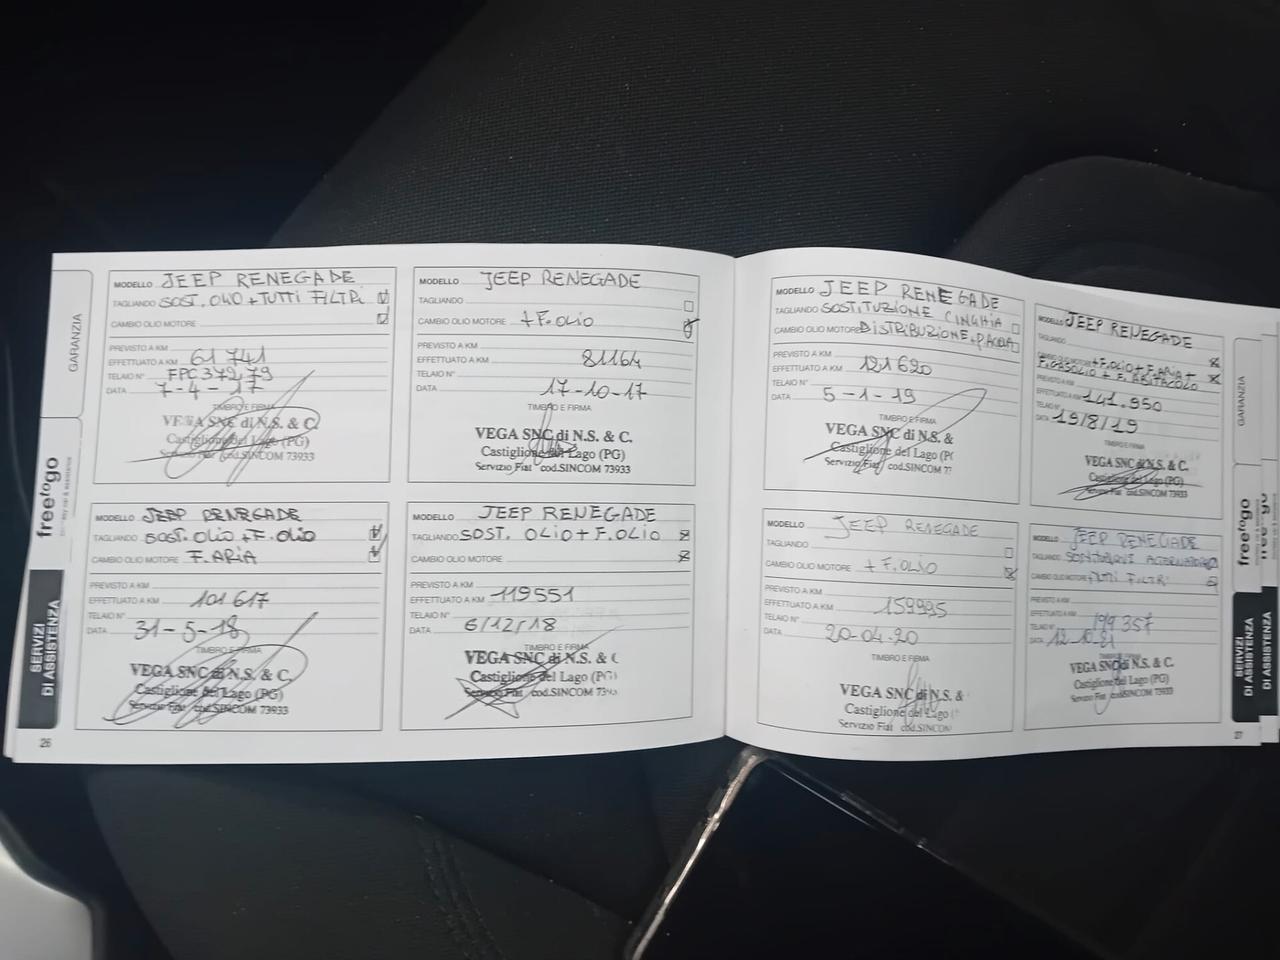 GARANZIA
freetogo
SERVIZI
DI ASSISTENZA
MODELLO JEEP RENEGADE
TAGLIANDO SOST. OLIO + TUTTI FILTRI
CAMBIO OLIO MOTORE
PREVISTO A KM
EFFETTUATO A KM 61741
TELAIO N° FPC37279
DATA 7-4-17
TIMBRO E FIRMA
VEGA SNC di N.S. & C.
Castiglione del Lago (PG)
Servizio Fiat cod.SINCOM 73933
MODELLO JEEP RENEGADE
TAGLIANDO
CAMBIO OLIO MOTORE + F. OLIO
PREVISTO A KM
EFFETTUATO A KM 81164
TELAIO N°
DATA 17-10-17
TIMBRO E FIRMA
VEGA SNC di N.S. & C.
Castiglione del Lago (PG)
Servizio Fiat cod.SINCOM 73933
MODELLO JEEP RENEGADE
TAGLIANDO SOST. OLIO + F. OLIO
CAMBIO OLIO MOTORE F. ARIA
PREVISTO A KM
EFFETTUATO A KM 101617
TELAIO N°
DATA 31-5-18
TIMBRO E FIRMA
VEGA SNC di N.S. & C.
Castiglione del Lago (PG)
Servizio Fiat cod.SINCOM 73933
MODELLO JEEP RENEGADE
TAGLIANDO SOST. OLIO + F. OLIO
CAMBIO OLIO MOTORE
PREVISTO A KM
EFFETTUATO A KM 119551
TELAIO N°
DATA 6/12/18
TIMBRO E FIRMA
VEGA SNC di N.S. & C
Castiglione del Lago (PG)
Servizio Fiat cod.SINCOM 739
26
MODELLO JEEP RENEGADE
TAGLIANDO SOSTITUZIONE CINGHIA
CAMBIO OLIO MOTORE DISTRIBUZIONE + P. ACQUA
PREVISTO A KM
EFFETTUATO A KM 121620
TELAIO N°
DATA 5-1-19
TIMBRO E FIRMA
VEGA SNC di N.S. &
Castiglione del Lago (P
Servizio Fiat cod.SINCOM 7
MODELLO JEEP RENEGADE
TAGLIANDO
CAMBIO OLIO MOTORE + F. OLIO + F. ARIA +
F. GASOLIO + F. ABITACOLO
PREVISTO A KM
EFFETTUATO A KM 141.950
TELAIO N°
DATA 19/8/19
TIMBRO E FIRMA
VEGA SNC di N.S. & C.
Castiglione del Lago (PG)
Servizio Fiat cod.SINCOM 73933
MODELLO JEEP RENEGADE
TAGLIANDO
CAMBIO OLIO MOTORE + F. OLIO
PREVISTO A KM
EFFETTUATO A KM 159995
TELAIO N°
DATA 20-04-20
TIMBRO E FIRMA
VEGA SNC di N.S. &
Castiglione del Lago
Servizio Fiat cod.SINCOM
MODELLO JEEP RENEGADE
TAGLIANDO
CAMBIO OLIO MOTORE + TUTTI FILTRI
PREVISTO A KM
EFFETTUATO A KM
TELAIO N° 199357
DATA 12.10.21
TIMBRO E FIRMA
VEGA SNC di N.S. & C.
Castiglione del Lago (PG)
Servizio Fiat cod.SINCOM 73933
27
GARANZIA
freetogo
SERVIZI
DI ASSISTENZA
DI ASSISTENZA